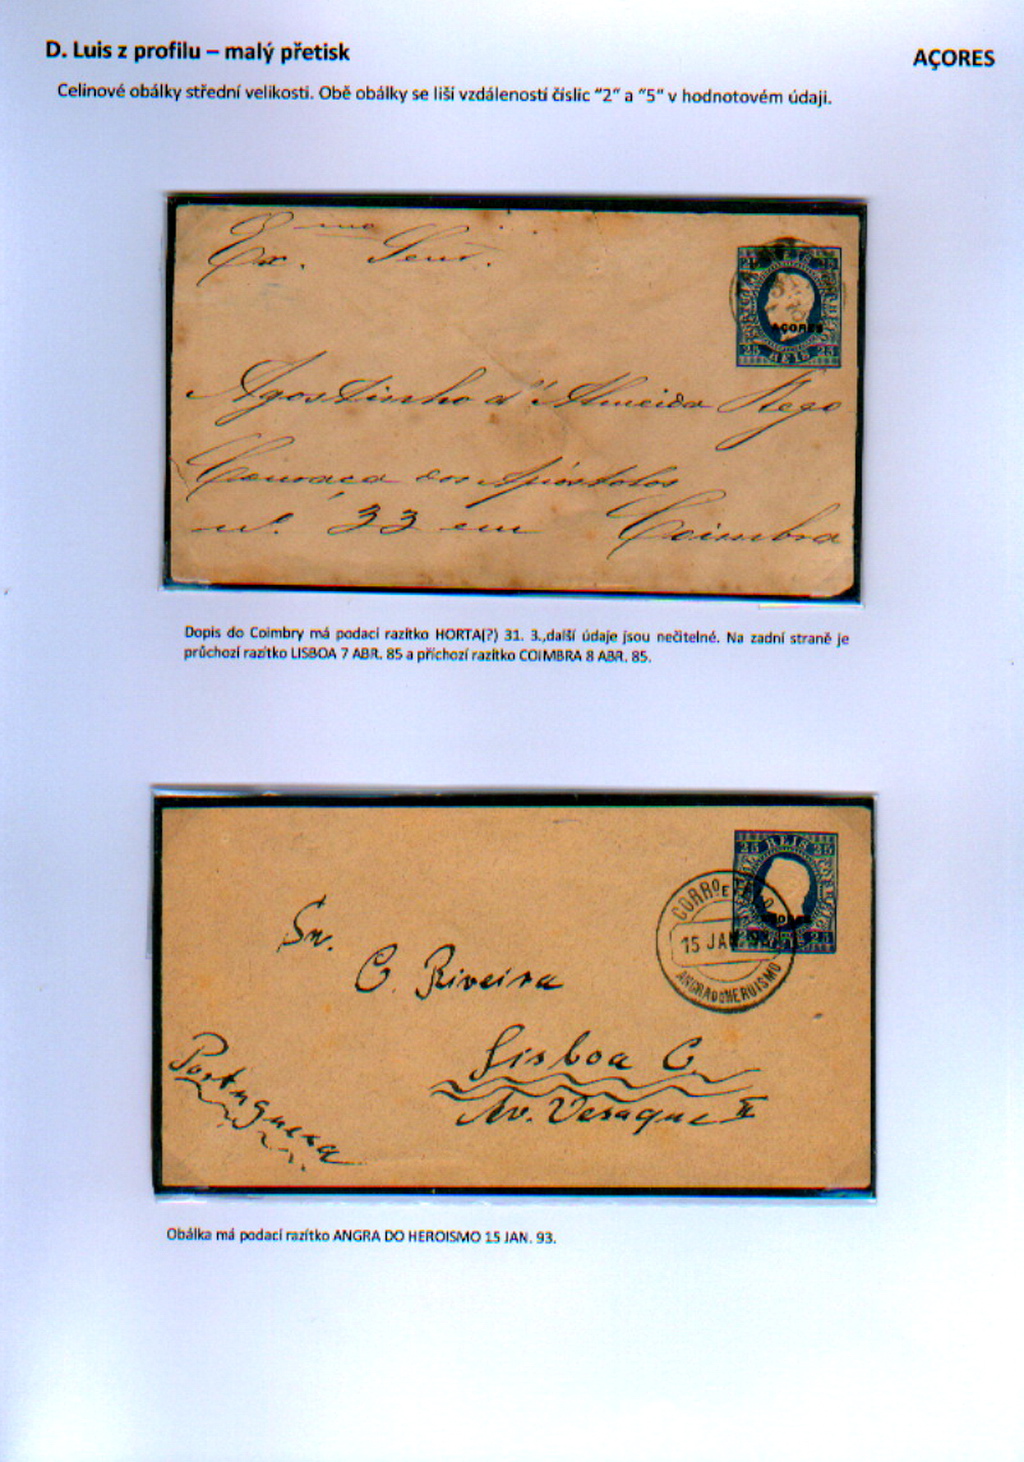 D. Luis z profilu – malý přetisk
AÇORES
Celinové obálky střední velikosti. Obě obálky se liší vzdáleností číslic "2" a "5" v hodnotovém údaji.
Exmo. Senr.
25 REIS 25
AÇORES
25 REIS 25
Agostinho d'Almeida Rego
Couraça dos Apóstolos
nº. 33 em Coimbra
Dopis do Coimbry má podací razítko HORTA(?) 31. 3.,další údaje jsou nečitelné. Na zadní straně je
průchozí razítko LISBOA 7 ABR. 85 a příchozí razítko COIMBRA 8 ABR. 85.
25 REIS 25
CORRO E
15 JAN 93
ANGRA DO HEROISMO
25 25
Sn.
C. Riveira
Lisboa C.
Av. Veraque II
Portuguesa
Obálka má podací razítko ANGRA DO HEROISMO 15 JAN. 93.